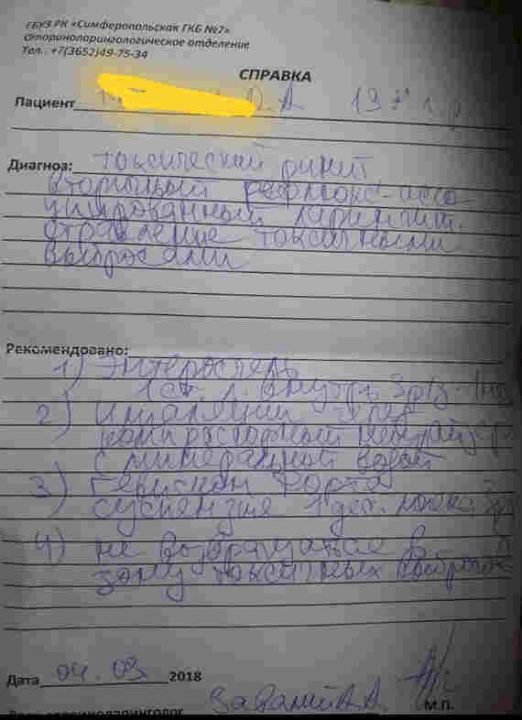 ГБУЗ РК «Симферопольская ГКБ №7»
Оториноларингологическое отделение
Тел.. +7(3652)49-75-34
СПРАВКА
Пациент
Диагноз: токсический ринит
вторичный рефлюкс-ассо
циированный ларингит.
отравление токсичными
выбросами
Рекомендовано:
1) Энтеросгель
1 ст. л. внутрь 3 р/д
2) ингаляции через
компрессорный небулайзер
с минеральной водой
3) Гевискон Форте
суспензия 1 дес. ложка 3р
4) не возвращаться в
зону токсичных выбросов
Дата 04.09 2018
М.П.